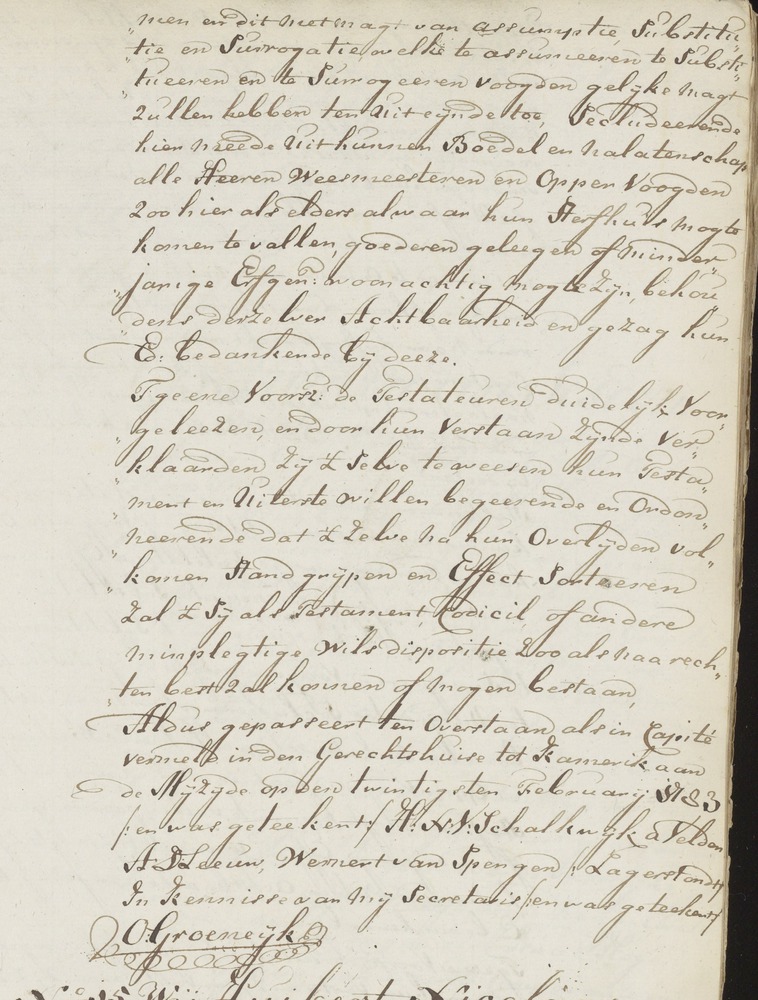 „men en dit met magt van assumptie, Substitu„
„tie en Surrogatie, welke te assumeeren te Substi„
„tueeren en te Surrogeeren voogden gelyke magt
zullen hebben ten Uiteynde toe, Secludeerende
hier meede Uit hunnen Boedel en nalatenschap
alle Heeren Weesmeesteren en Opper Voogden
zoo hier als elders alwaar hun Sterfhuis mogte
komen te vallen, goederen geleegen of minder„
„jarige Erfgen: woonachtig mogte zyn, behou„
„dens derzelver Achtbaarheid en gezag hun
Ed: bedankende by deeze.
Tgeene Voorsz: de Testateuren duidelyk Voor„
„geleezen, en door hun Verstaan zynde Ver„
„klaarden zy 't Selve te weesen hun Testa„
„ment en Uiterste willen begeerende en Ordon„
„neerende dat 't zelve na hun Overlyden vol„
„komen Stand grypen en Effect Sorteeren
zal 't Sy als Testament, Codicil, of andere
minplegtige Wils dispositie zoo als naa rech„
„ten best zal konnen of mogen bestaan,
Aldus gepasseert ten Overstaan als in Capite
vermelt in den Gerechtshuise tot Kamerik aan
de Myzyde op den twintigsten February 1783
/:en was geteekent:/ H: N: V: Schalkwyk a Velden
A: D Leeuw, Wernert van Spengen /: Lagerstondt:/
In Kennisse van my Secretaris /:en was geteekent:/
O: Groeneyk